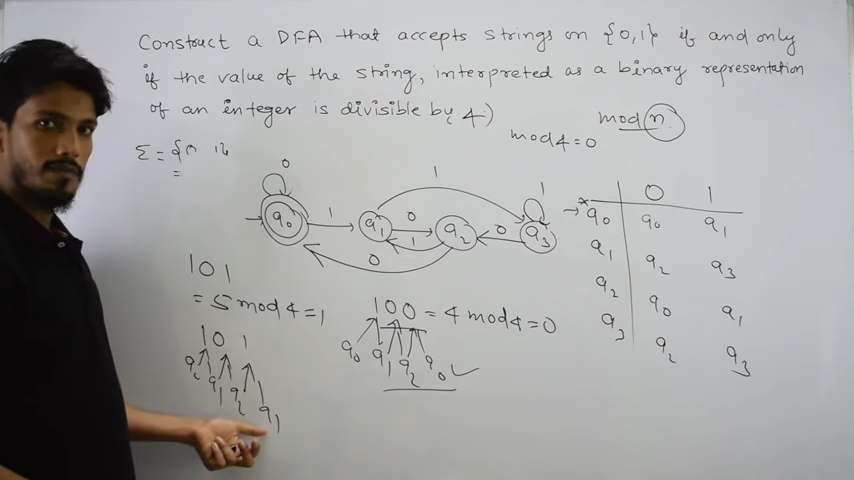 Construct a DFA that accepts strings on {0,1} if and only
if the value of the string, interpreted as a binary representation
of an integer is divisible by 4)
mod n
mod 4 = 0
Σ = {0 1}
0
1
1
0 1
q0 1 q1 0 q2 0 q3
1
0
→* q0 q0 q1
q1 q2 q3
q2 q0 q1
q3 q2 q3
101
= 5 mod 4 = 1
101
q1 q2 q1
100 = 4 mod 4 = 0
q0 q1 q2 q0 ✓